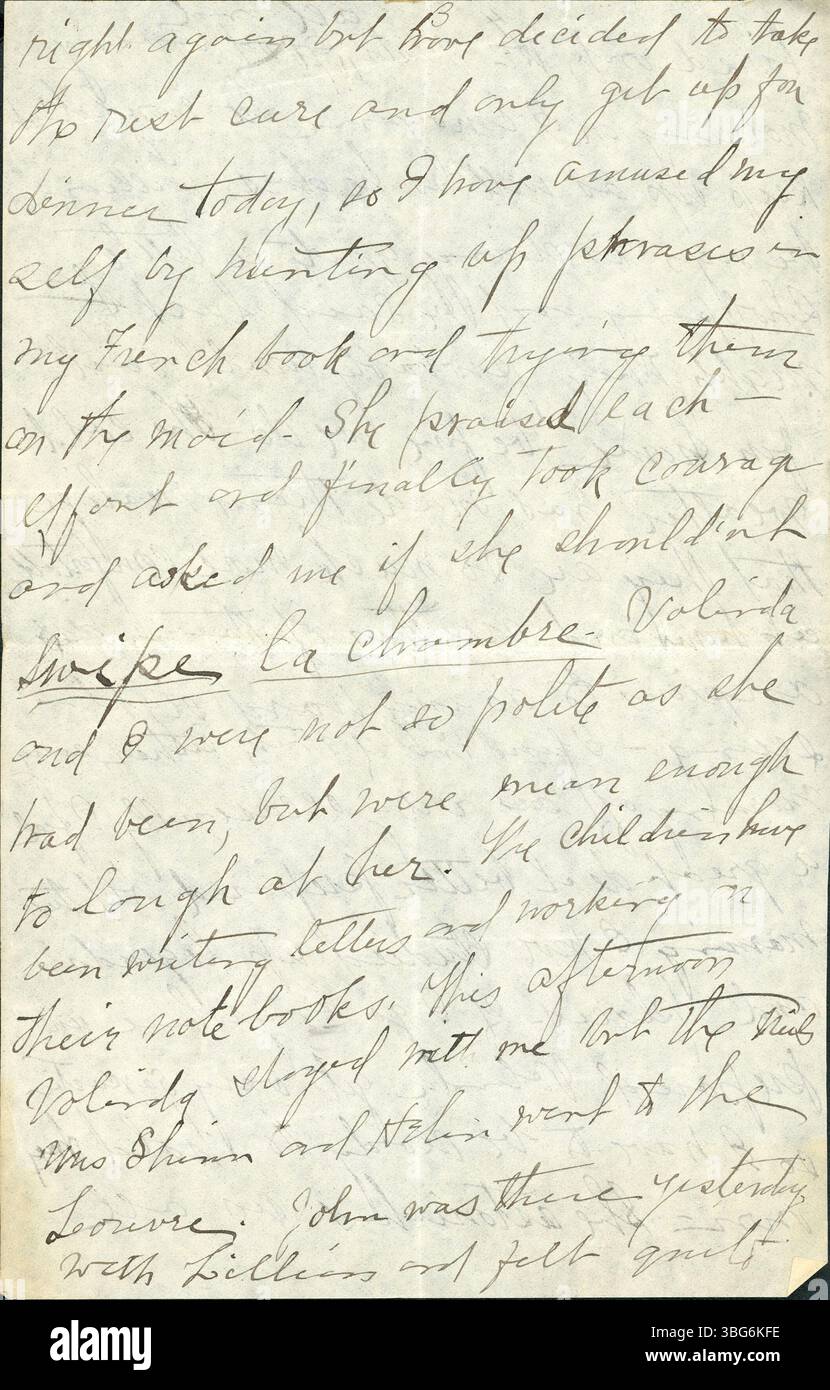 3
right again but have decided to take
the rest cure and only get up for
dinner today, so I have amused my
self by hunting up phrases in
my French book and trying them
on the maid - She praised each -
effort and finally took courage
and asked me if she should'nt
swipe la chambre. Volinda
and I were not so polite as she
had been, but were mean enough
to laugh at her. The children have
been writing letters and working on
their note books. This afternoon
Volinda stayed with me but the
Mrs Shinn and Helen went to the
Louvre. John was there yesterday
with Lillian and felt quite
alamy
alamy
Image ID: 3BG6KFE
www.alamy.com